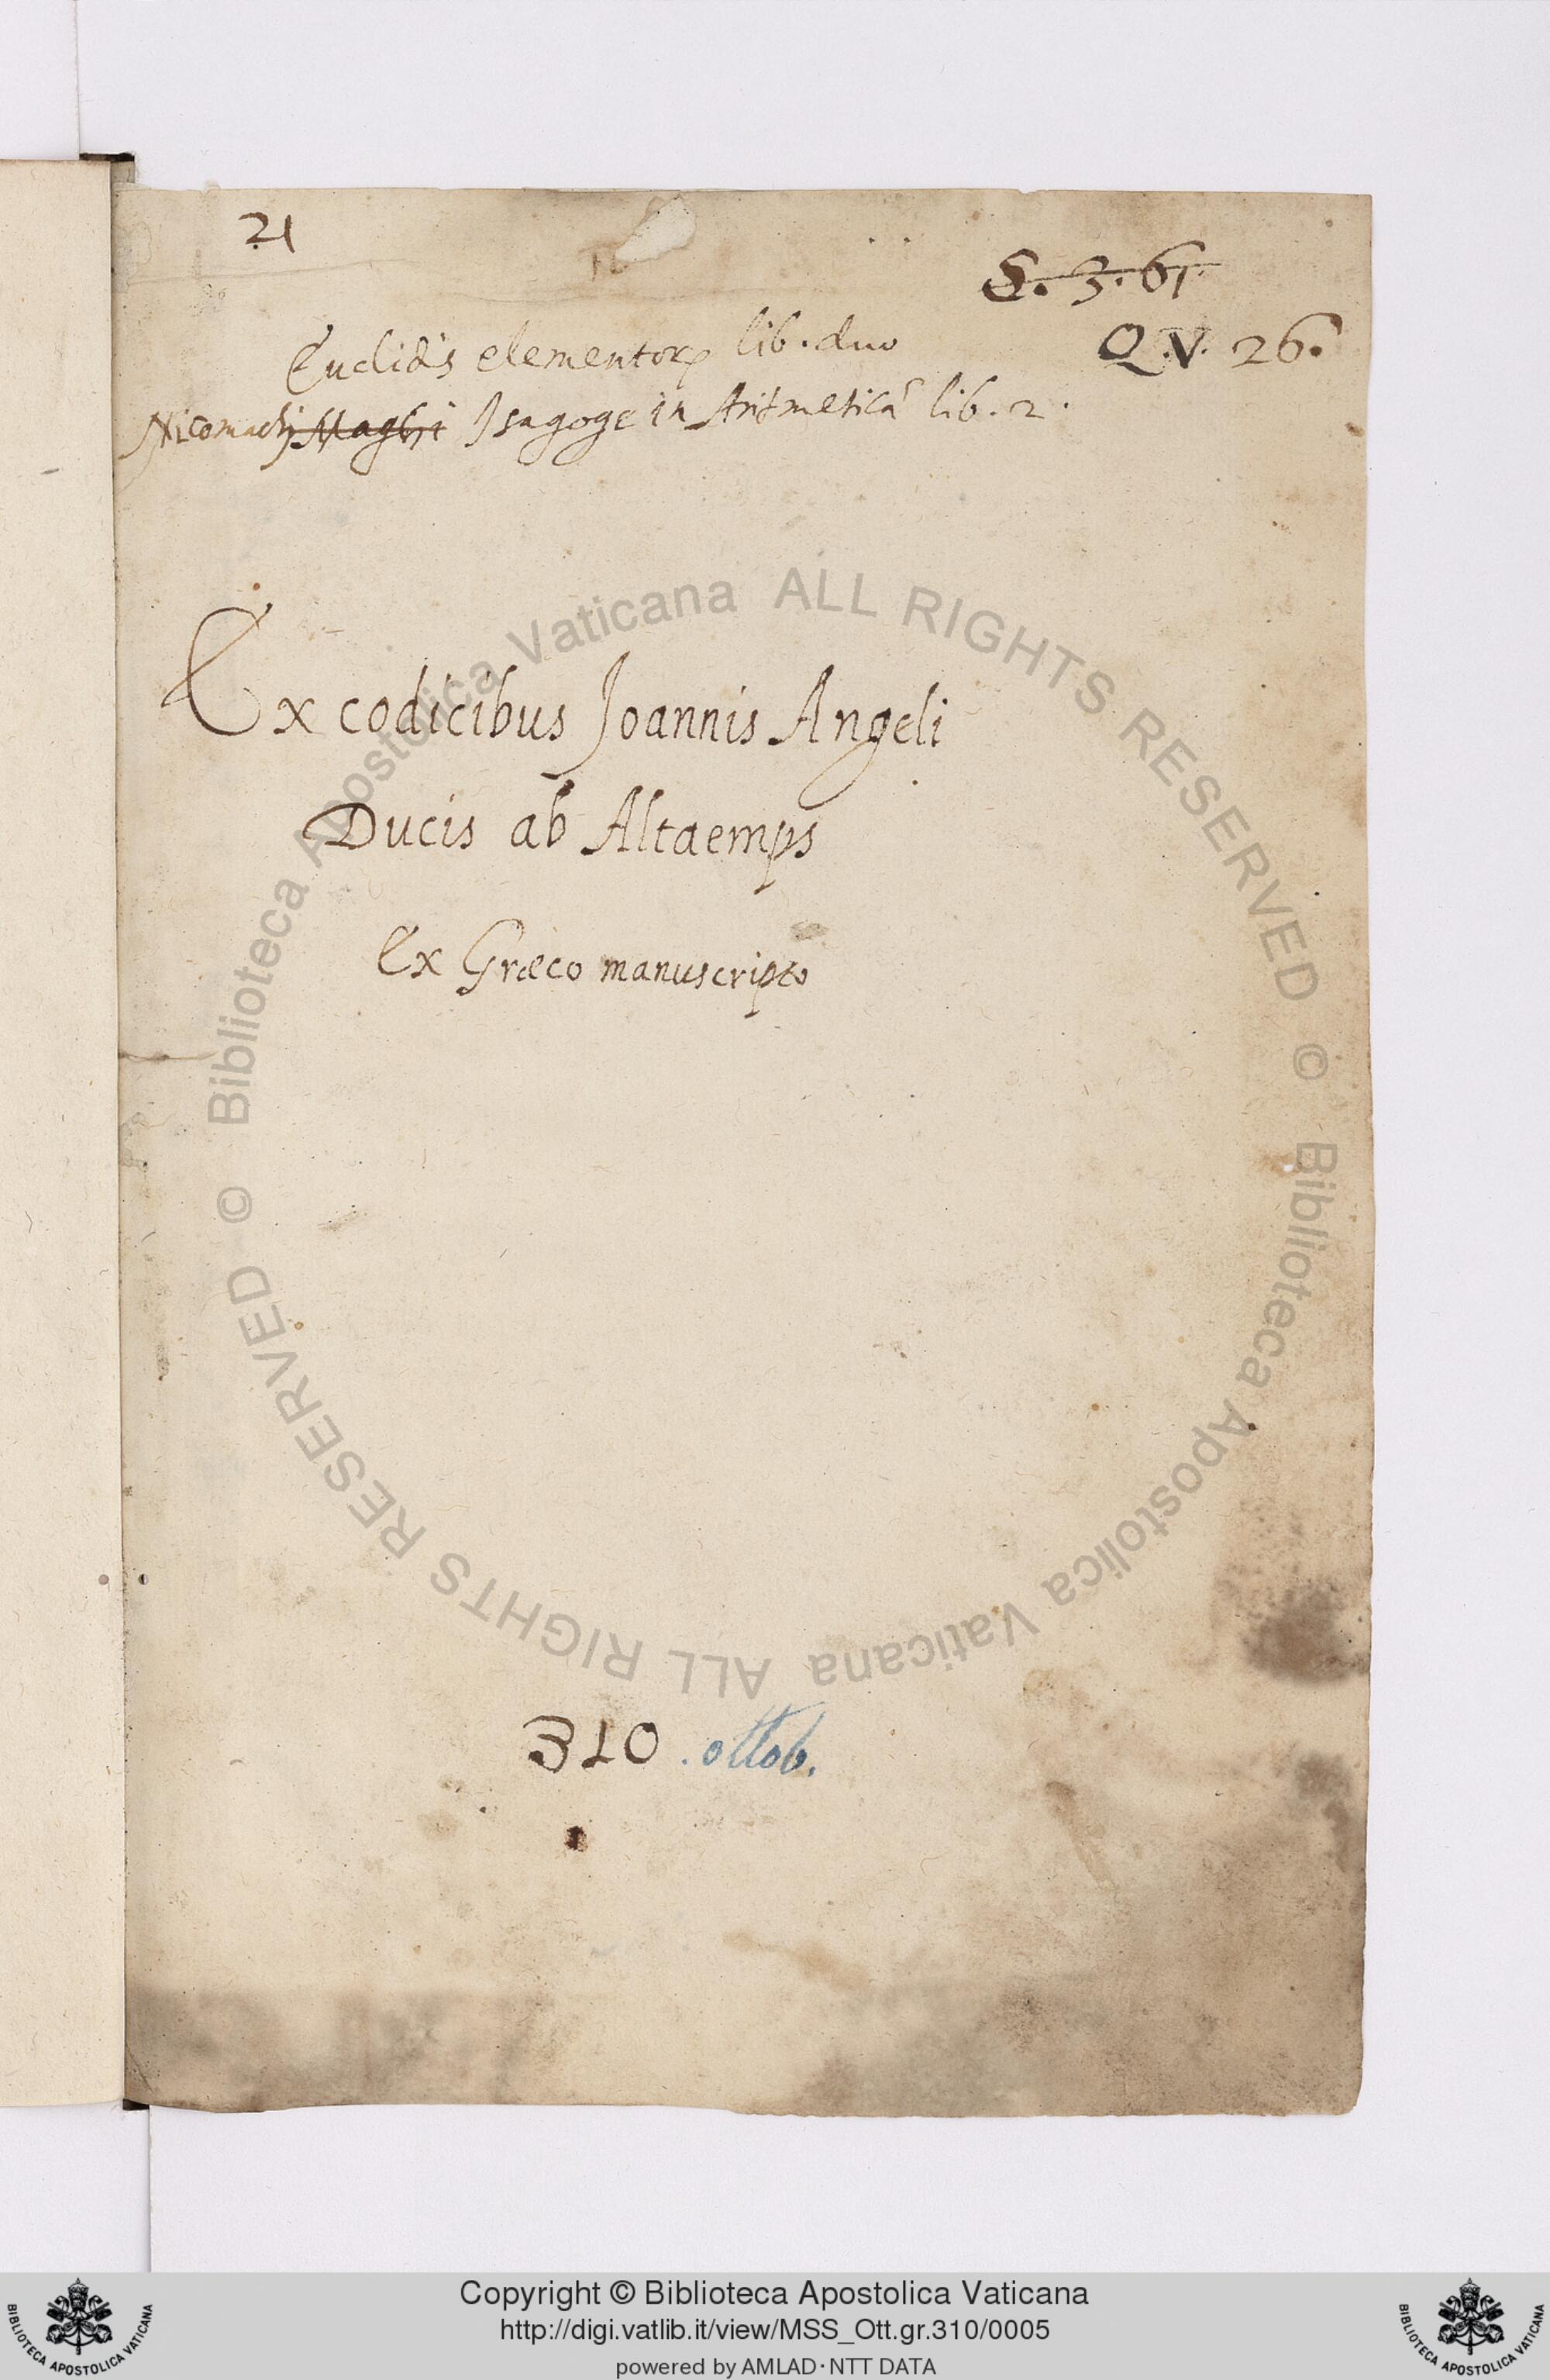 21
S. 3. 61.
Q.V. 26.
Euclidis elementorꝝ lib. duo
Nicomachi Maghi Isagoge in Aritmeticā lib. 2.
Ex codicibus Joannis Angeli
Ducis ab Altaemps
Ex Græco manuscripto
310 . ottob.
© Biblioteca Apostolica Vaticana ALL RIGHTS RESERVED © Biblioteca Apostolica Vaticana ALL RIGHTS RESERVED
Copyright © Biblioteca Apostolica Vaticana
http://digi.vatlib.it/view/MSS_Ott.gr.310/0005
powered by AMLAD·NTT DATA
BIBLIOTECA APOSTOLICA VATICANA
BIBLIOTECA APOSTOLICA VATICANA